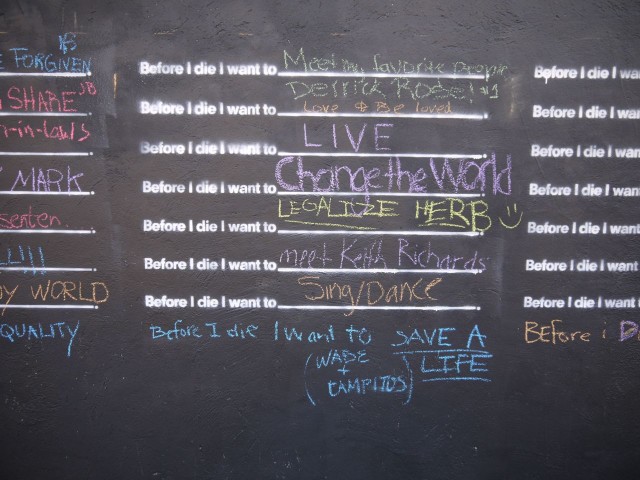 E FORGIVEN
SHARE JB
n-in-laws
MARK
WORLD
QUALITY
Before I die I want to Meet my favorite people
Derrick Rose! #1
Before I die I want to Love & Be loved
Before I die I want to LIVE
Before I die I want to Change the World
Before I die I want to LEGALIZE HERB
Before I die I want to meet Keith Richards
Before I die I want to Sing/Dance
Before I die I want to SAVE A
LIFE
(WABE
+
CAMPITOS)
Before I die I wa
Before I die I wan
Before I die I wan
Before I die I wan
Before I die I want
Before I die I want
Before I die I want
BEFore i Di